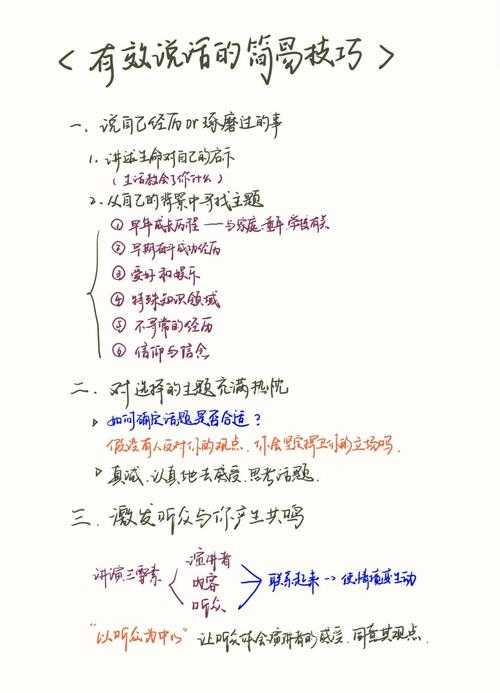 <有效说话的简易技巧>
一. 说自己经历or琢磨过的事
1. 讲述生命对自己的启示
(生活教会了你什么)
2. 从自己的背景中寻找主题
① 早年成长历程——与家庭.童年.学校有关
② 早期奋斗成功经历
③ 爱好和娱乐
④ 特殊知识领域
⑤ 不寻常的经历
⑥ 信仰与信念
二. 对选择的主题充满热忱
▸ 如何确定话题是否合适？
假设有人反对你的观点, 你会坚定捍卫你的立场吗.
▸ 真诚.认真地去感受.思考话题.
三. 激发听众与你产生共鸣
讲演三要素
演讲者
内容
听众
联系起来 --> 使情境更生动
"以听众为中心" 让听众体会演讲者的感受.同意其观点.